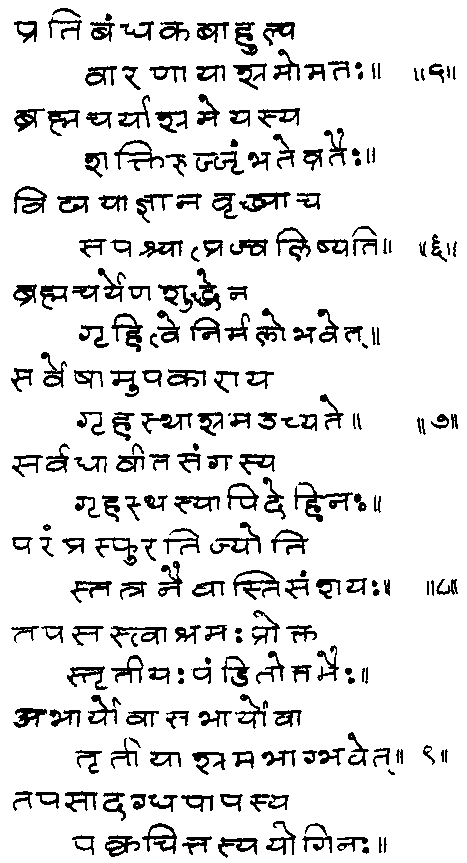 प्रतिबंधकबाहुल्य
वारणायाश्रमोमतः॥ ॥५॥
ब्रह्मचर्याश्रमेयस्य
शक्तिरुज्जृंभतेव्रतैः॥
विद्ययाज्ञानवृद्ध्याच
सपश्चात्प्रज्वलिष्यति॥ ॥६॥
ब्रह्मचर्येणशुद्धेन
गृहित्वेनिर्मलोभवेत्॥
सर्वेषामुपकाराय
गृहस्थाश्रमउच्यते॥ ॥७॥
सर्वथावीतसंगस्य
गृहस्थस्यापिदेहिनः॥
परंप्रस्फुरतिज्योति
स्तत्रनैवास्तिसंशयः॥ ॥८॥
तपसस्त्वाश्रमःप्रोक्त
स्तृतीयःपंडितोत्तमैः॥
अभार्योवासभार्योवा
तृतीयाश्रमभाग्भवेत्॥ ९॥
तपसादग्धपापस्य
पक्वचित्तस्ययोगिनः॥